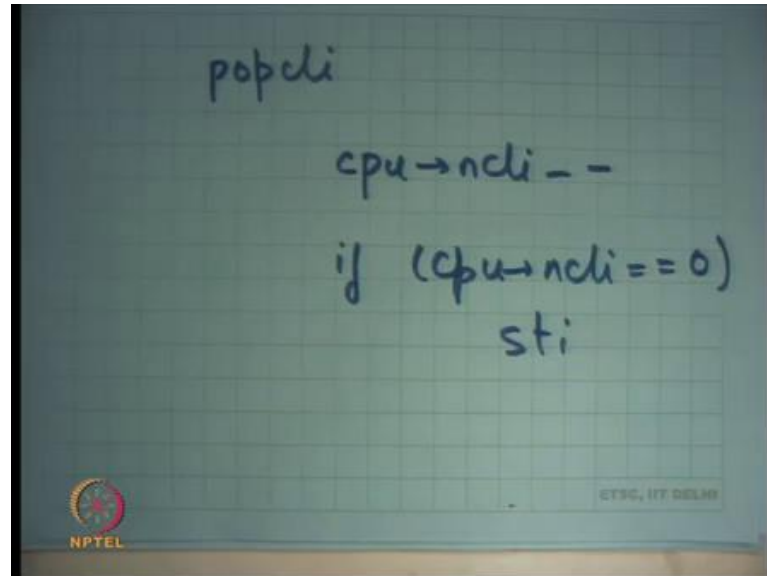 popcli
cpu→ncli--
if (cpu→ncli==0)
sti
ETSC, IIT DELHI
NPTEL